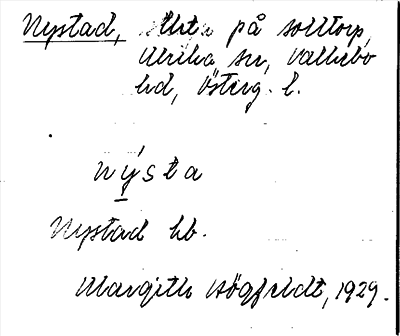 Nystad, på solltorp,
Ulrika sn, Vallebo
hd, Österg. l.
nýsta
Nystad hb.
Margith Högfeldt, 1929.